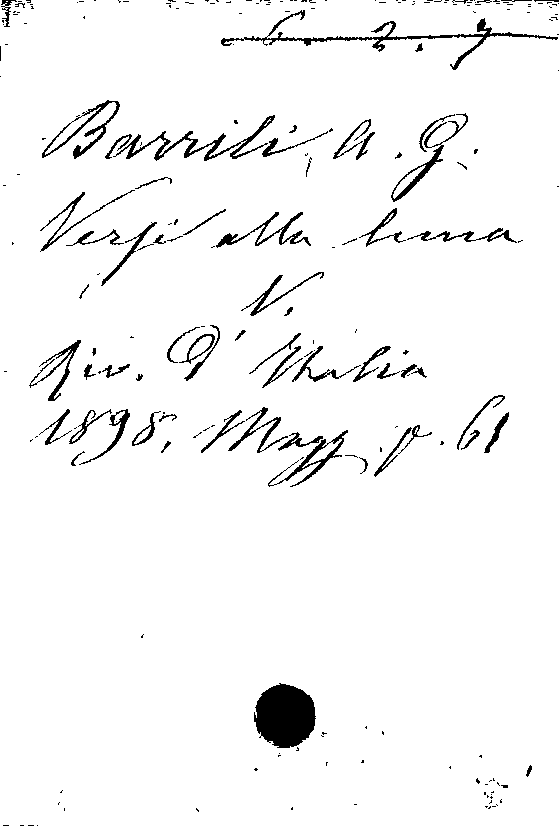 6. 2. 7
Barrili, A. G.
Versi alla luna
V.
Riv. D' Italia
1898, Magg. p. 61